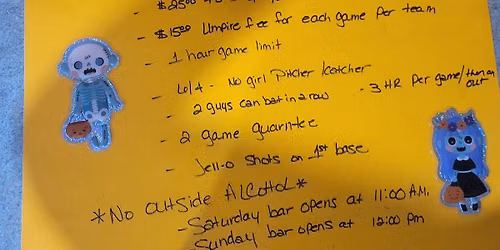 - $1500 Umpire fee for each game per team
- 1 hour game limit
- No girl Pitcher/catcher
- 2 guys can bat in a row - 3 HR per game/then an out
- 2 game guarntee
- Jell-o Shots on 1st base
*No outside Alcohol*
- Saturday bar opens at 11:00 A.M.
Sunday bar opens at 12:00 pm